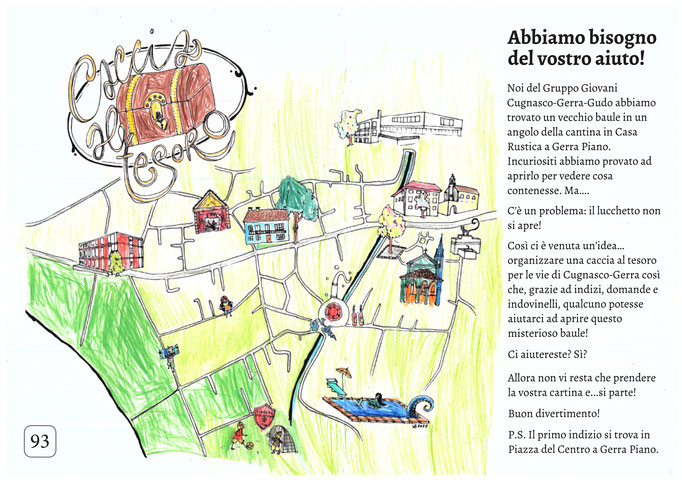 Caccia
al
tesoro
93
Abbiamo bisogno
del vostro aiuto!
Noi del Gruppo Giovani
Cugnasco-Gerra-Gudo abbiamo
trovato un vecchio baule in un
angolo della cantina in Casa
Rustica a Gerra Piano.
Incuriositi abbiamo provato ad
aprirlo per vedere cosa
contenesse. Ma....
C'è un problema: il lucchetto non
si apre!
Così ci è venuta un'idea...
organizzare una caccia al tesoro
per le vie di Cugnasco-Gerra così
che, grazie ad indizi, domande e
indovinelli, qualcuno potesse
aiutarci ad aprire questo
misterioso baule!
Ci aiutereste? Sì?
Allora non vi resta che prendere
la vostra cartina e...si parte!
Buon divertimento!
P.S. Il primo indizio si trova in
Piazza del Centro a Gerra Piano.